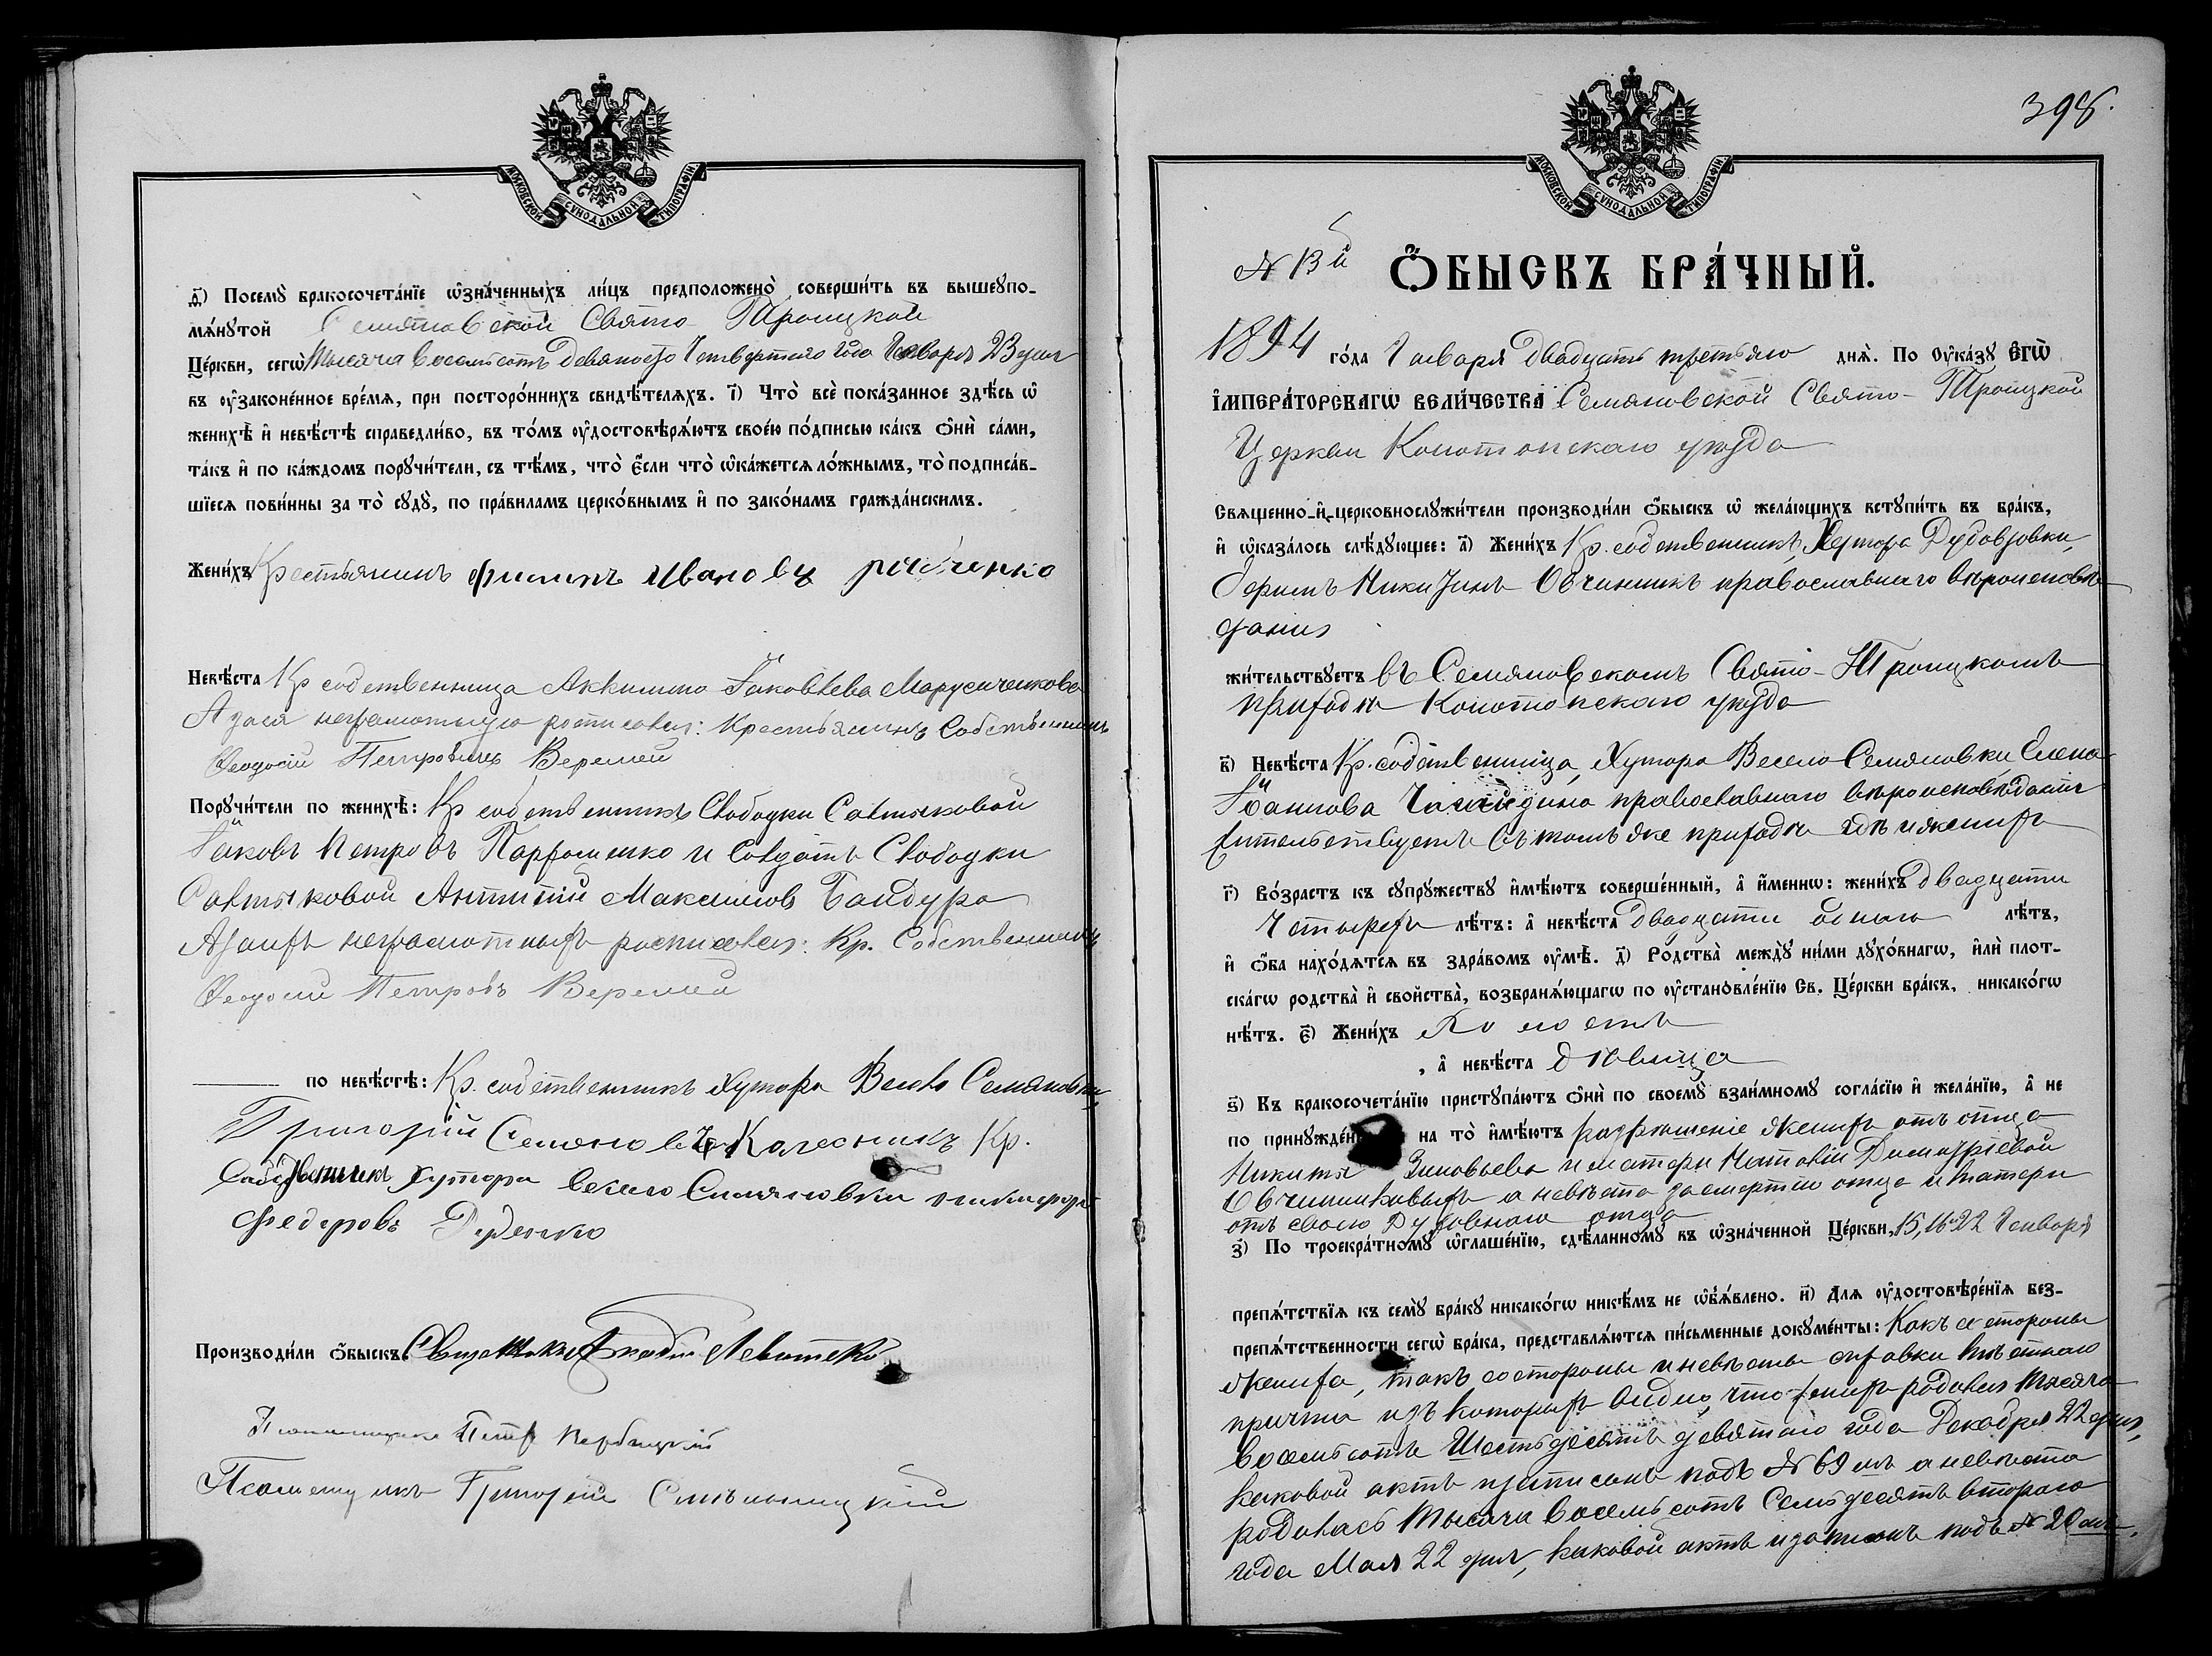 МОСКОВСКОЙ СѴНОДАЛЬНОЙ ТИПОГРАФІИ
д҃) Посемꙋ̀ бракосочета́нїе ѡ҆зна́ченныхъ ли́цъ предположено̀ соверши́ть въ вышеꙋпо-
мѧ́нꙋтой Семяновской Свято-Троицкой
Це́ркви, сегѡ̀ Тысяча восемьсотъ девяносто Четвертого года Января 23 дня
въ ᲂу҆законе́нное вре́мѧ, при посторо́ннихъ свидѣ́телѧхъ. і҃) Что̀ всѐ пока́занное здѣ́сь ѡ҆
женихѣ̀ и҆ невѣ́стѣ справедли́во, въ то́мъ ᲂу҆достовѣрѧ́ютъ свое́ю по́дписью ка́къ ѻ҆нѝ са́ми,
та́къ и҆ по ка́ждомъ порꙋчи́тели, съ тѣ́мъ, что̀ є҆́сли что̀ ѡ҆ка́жетсѧ ло́жнымъ, то̀ подписа́в-
шїесѧ пови́нны за то̀ сꙋдꙋ̀, по пра́виламъ церко́внымъ и҆ по зако́намъ гражда́нскимъ.
Жени́хъ Крестьянинъ Филипъ Ивановъ
Невѣ́ста Кр собственница Яковлева Марусиченкова
А за ея неграмотную росписался: Крестьянинъ Собственникъ
Феодосій Петровичъ Веремей
Порꙋчи́тели по женихѣ̀: Кр собственникъ Слободки Салтыковой
Іаковъ Петровъ Парфоменко и Солдатъ Слободки
Салтыковой Антипій Максимов Бандура
А за ихъ неграмотныхъ росписался: Кр. Собственникъ
Феодосій Петровъ Веремей
по невѣ́стѣ: Кр. собственникъ Хутора Весело Семяновки,
Григорій Семеновъ Колесникъ Кр.
Собственикъ Хутора Весело Семяновки Никифоръ
Федоровъ Руденко
Производи́ли ѻ҆́быскъ: Священникъ Левитскій
Псаломщикъ Петръ Вербицкій
Псаломщикъ Григорій
398.
МОСКОВСКОЙ СѴНОДАЛЬНОЙ ТИПОГРАФІИ
№ 13й
Ѻ҆́БЫСКЪ БРА́ЧНЫЙ.
1894 го́да Января двадцать третьяго днѧ̀. По ᲂу҆ка́зꙋ Є҆гѡ̀
І҆мпера́торскагѡ Вели́чества Семяновской Свято-Троицкой
Церкви Конотопскаго уѣзда
Свѧщенно-и҆-церковнослꙋжи́тели производи́ли ѻ҆́быскъ ѡ҆ жела́ющихъ вступи́ть въ бра́къ,
и҆ ѡ҆каза́лось слѣ́дꙋющее: а҃) Жени́хъ Кр. собственникъ, Хутора Дубовязовки,
Ефимъ Никитинъ Овчинникъ православнаго вѣроисповѣ-
данія
жи́тельствꙋетъ въ Семяновскомъ Свято-Троицкомъ
приходѣ Конотопскаго уѣзда
в҃) Невѣ́ста Кр. собственница, Хутора Весело Семяновки Елена
Іоаннова православнаго вѣроисповѣданія
жительствуетъ въ томъ же приходѣ гдѣ и женихъ
г҃) Во́зрастъ къ сꙋпрꙋ́жествꙋ и҆мѣ́ютъ соверше́нный, а҆ и҆́меннѡ: жени́хъ двадцати
Четырехъ лѣ́тъ: а҆ невѣ́ста Двадцати одного лѣ́тъ,
и҆ ѻ҆́ба нахо́дѧтсѧ въ здра́вомъ ᲂу҆мѣ̀. д҃) Ро́дства междꙋ̀ ни́ми дꙋхо́внагѡ, и҆лѝ плот-
ска́гѡ родства̀ и҆ свойства̀, возбранѧ́ющагѡ по ᲂу҆становле́нїю Св. Це́ркви бра́къ, никако́гѡ
нѣ́тъ. є҃) Жени́хъ Холостъ
, а҆ невѣ́ста дѣвица
ѕ҃) Къ бракосочета́нїю пристꙋпа́ютъ ѻ҆нѝ по своемꙋ̀ взаи́мномꙋ согла́сїю и҆ жела́нїю, а҆ не
по принꙋжде́н на то̀ и҆мѣ́ютъ разрѣшеніе женихъ отъ отца
Никиты Зиновьева и матери Наталіи Димитріевой
Овчинниковыхъ а невѣста за смертію отца и матери
отъ своего Духовнаго отца
з҃) По троекра́тномꙋ ѡ҆глаше́нїю, сдѣ́ланномꙋ въ ѡ҆зна́ченной Це́ркви, 15, 16 и 22 Января
препѧ́тствїѧ къ семꙋ̀ бра́кꙋ никако́гѡ никѣ́мъ не ѡ҆б̾ѧ́влено. и҃) Длѧ ᲂу҆достовѣре́нїѧ без-
препѧ́тственности сегѡ̀ бра́ка, представлѧ́ютсѧ пи́сьменные докꙋме́нты: Какъ со стороны
жениха, такъ со стороны и невѣсты справки мѣстнаго
причта изъ которыхъ видно, что женихъ родился тысяча
восемьсотъ Шестьдесятъ девятаго года Декабря 22 дня,
каковой актъ и записанъ подъ № 69 мъ а невѣста
родилась тысяча восемьсотъ Семьдесятъ второго
года Мая 22 дня, каковой актъ и записанъ подъ № 20 мъ.